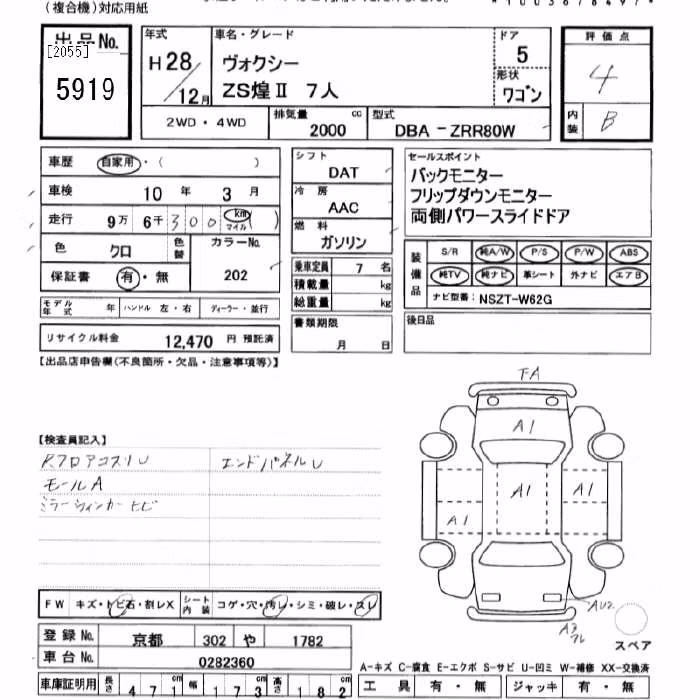 (複合機)対応用紙
出品No.
[2055]
5919
年式
H28/12月
車名・グレード
ヴォクシー
ZS煌Ⅱ 7人
ドア
5
形状
ワゴン
2WD・4WD
排気量 cc
2000
型式
DBA-ZRR80W
評価点
4
内装
B
車歴 自家用・( )
車検 10年 3月
走行 9万 6千 300 km マイル ( )
色 クロ 色替
カラーNo.
202
保証書 有・無
モデル年式 年 ハンドル 左・右 ディーラー・並行
リサイクル料金 12,470 円 預託済
シフト
DAT
冷房
AAC
燃料
ガソリン
乗車定員 7 名
積載量 kg
総重量 kg
書類期限
月 日
セールスポイント
バックモニター
フリップダウンモニター
両側パワースライドドア
装備品
S/R 純A/W P/S P/W ABS
純TV 純ナビ 革シート 外ナビ エアB
ナビ型番: NSZT-W62G
後日品
【出品店申告欄(不良箇所・欠品・注意事項等)】
【検査員記入】
RフロアコスリU エンドパネルU
モールA
ミラーウィンカーヒビ
FW キズ・トビ石・割レX シート内装 コゲ・穴・汚レ・シミ・破レ・スレ
登録No. 京都 302 や 1782
車台No. 0282360
車庫証明用 長さ 471cm 幅 173cm 高さ 182cm
FA
A1
A1
A1
A1
AU2
A3
スペア
A-キズ C-腐食 E-エクボ S-サビ U-凹ミ W-補修 XX-交換済
工具 有・無 ジャッキ 有・無